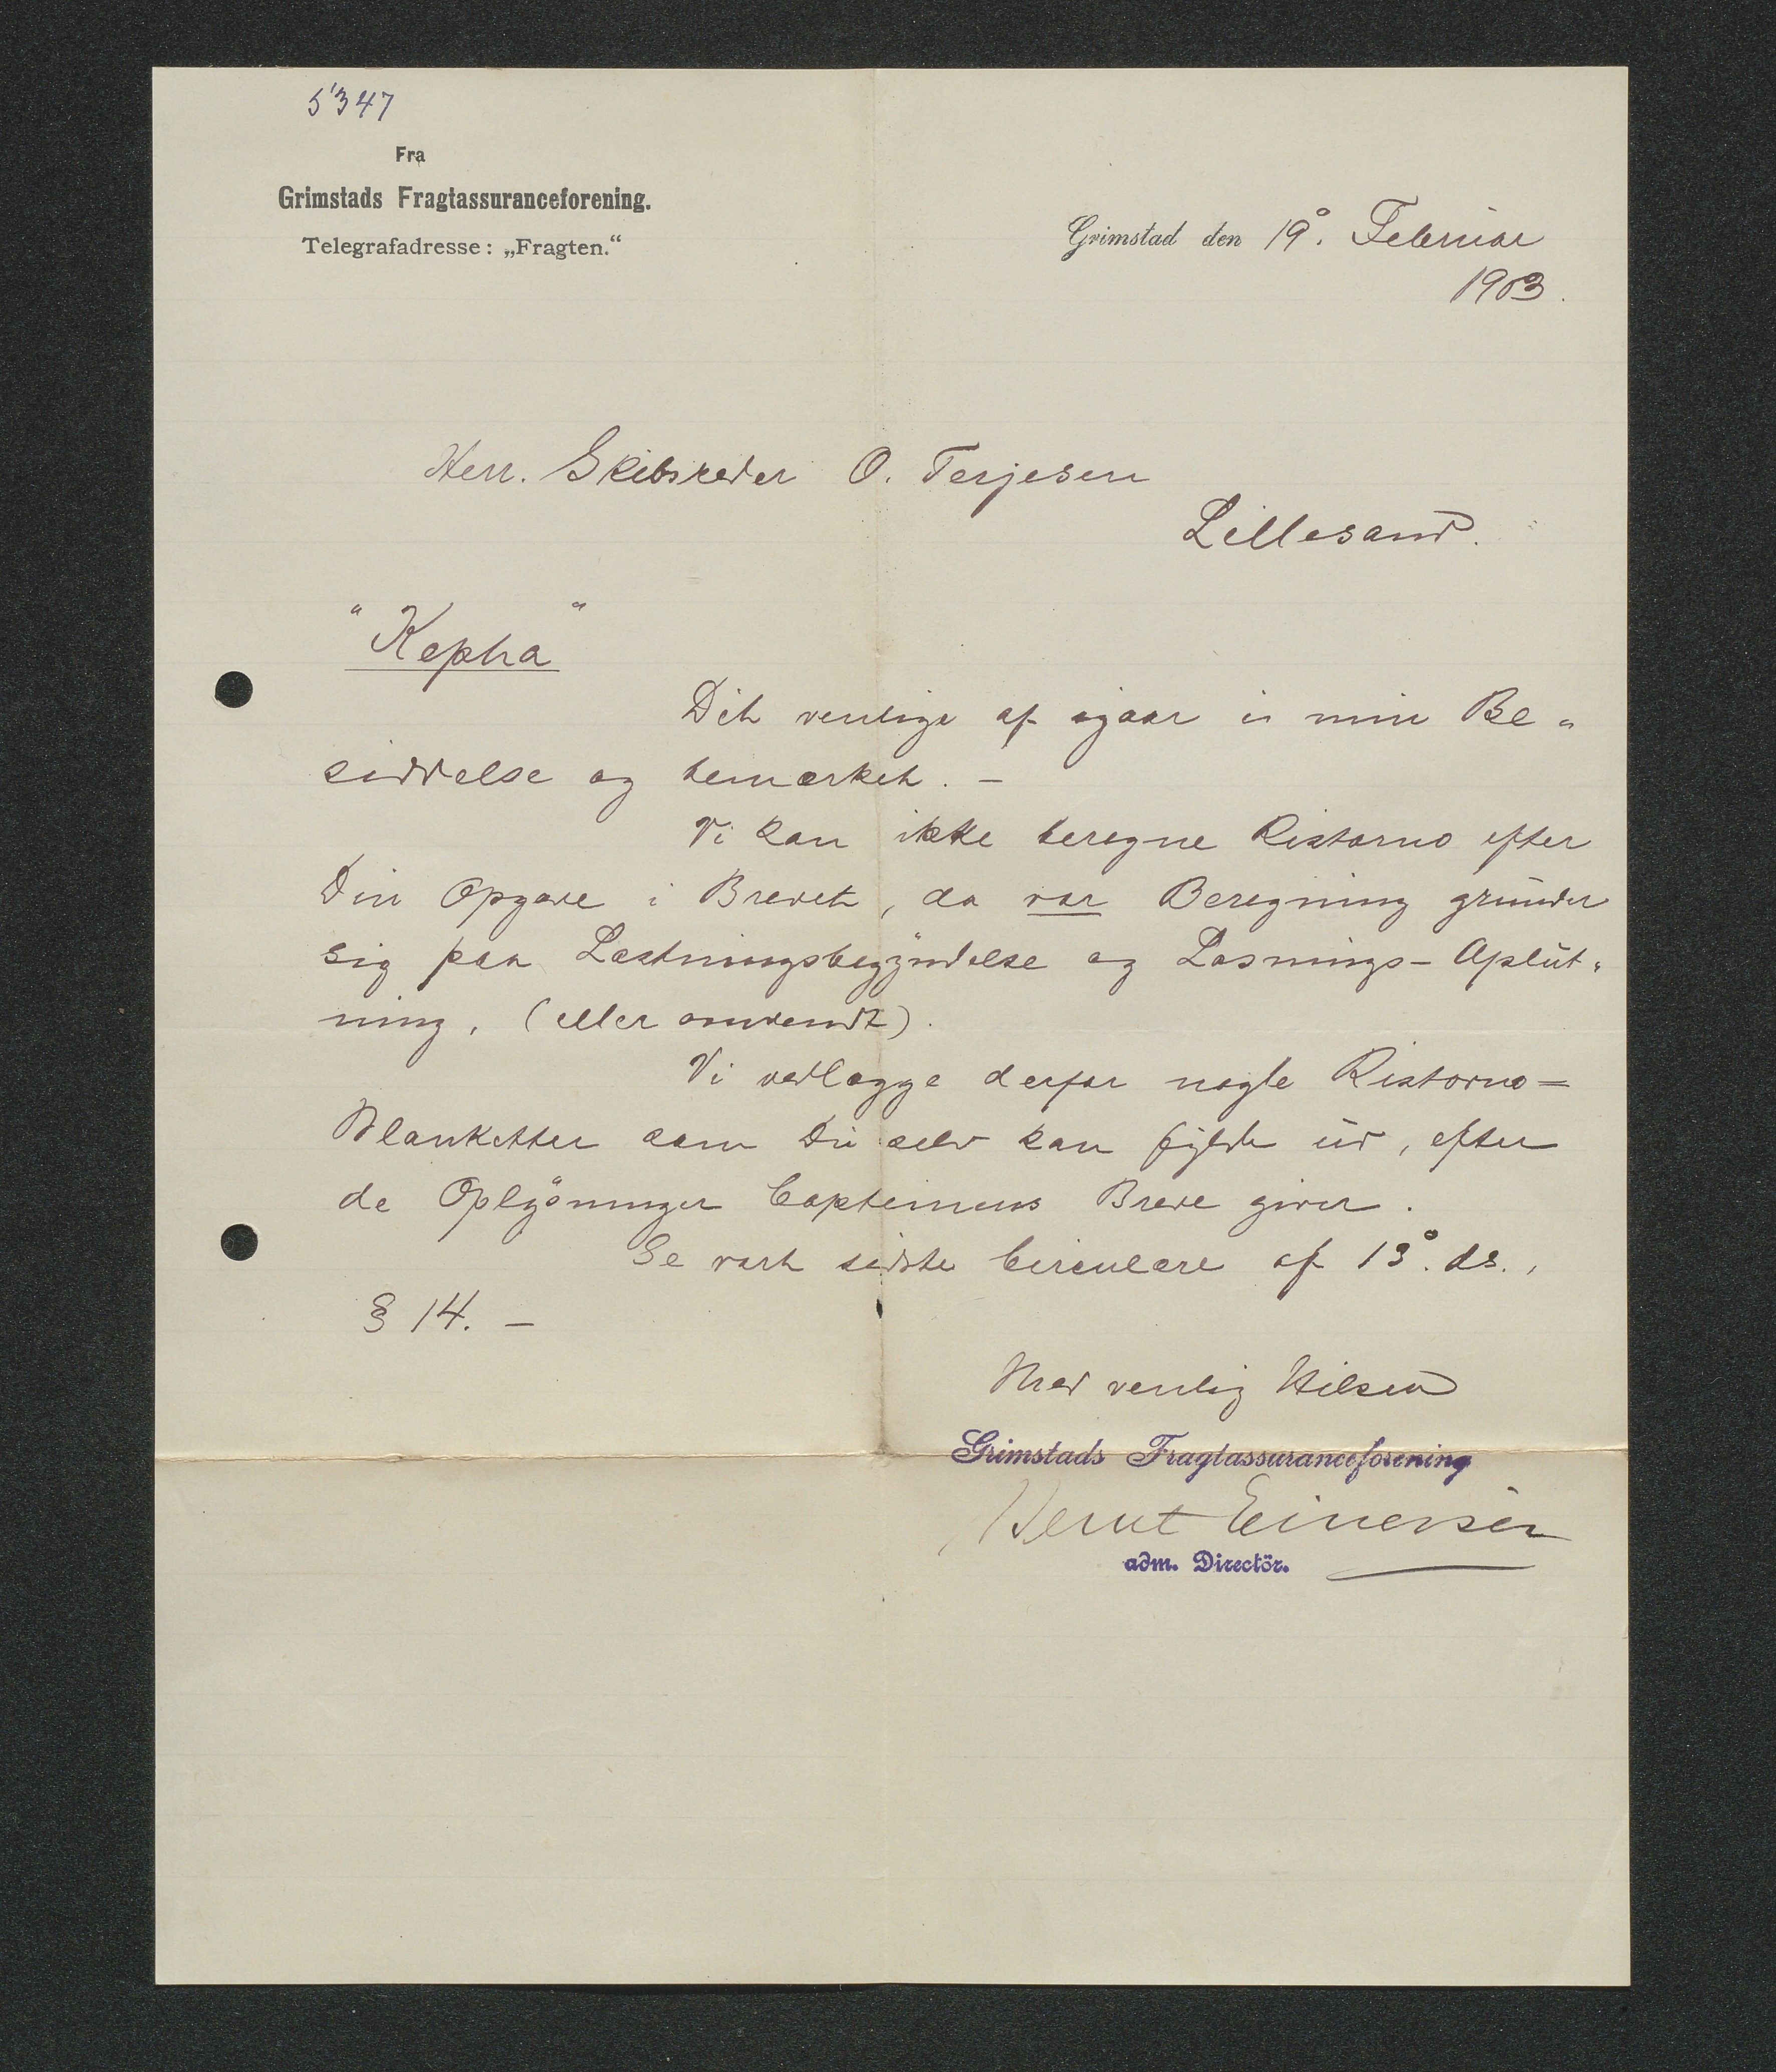 5347
Fra
Grimstads Fragtassuranceforening.
Telegrafadresse: „Fragten.“
Grimstad den 19º. Februar
1903.
Herr. Skibsreder O. Terjesen
Lillesand.
"Kepha"
Dit venlige af igaar i min Be-
siddelse og bemærket. -
Vi kan ikke beregne Ristorno efter
Din Opgave i Brevet, da vor Beregning grunder
sig paa Lastningsbegyndelse og Losnings-Aslut-
ning, (eller omvendt).
Vi vedlægge derfor nogle Ristorno=
Blanketter som Du selv kan fylde ud, efter
de Oplysninger Capteinens Breve giver.
Se vort sidste Circulære af 13º. ds.,
§ 14. -
Med venlig Hilsen
Grimstads Fragtassuranceforening
Bernt Einersen
adm. Directör.